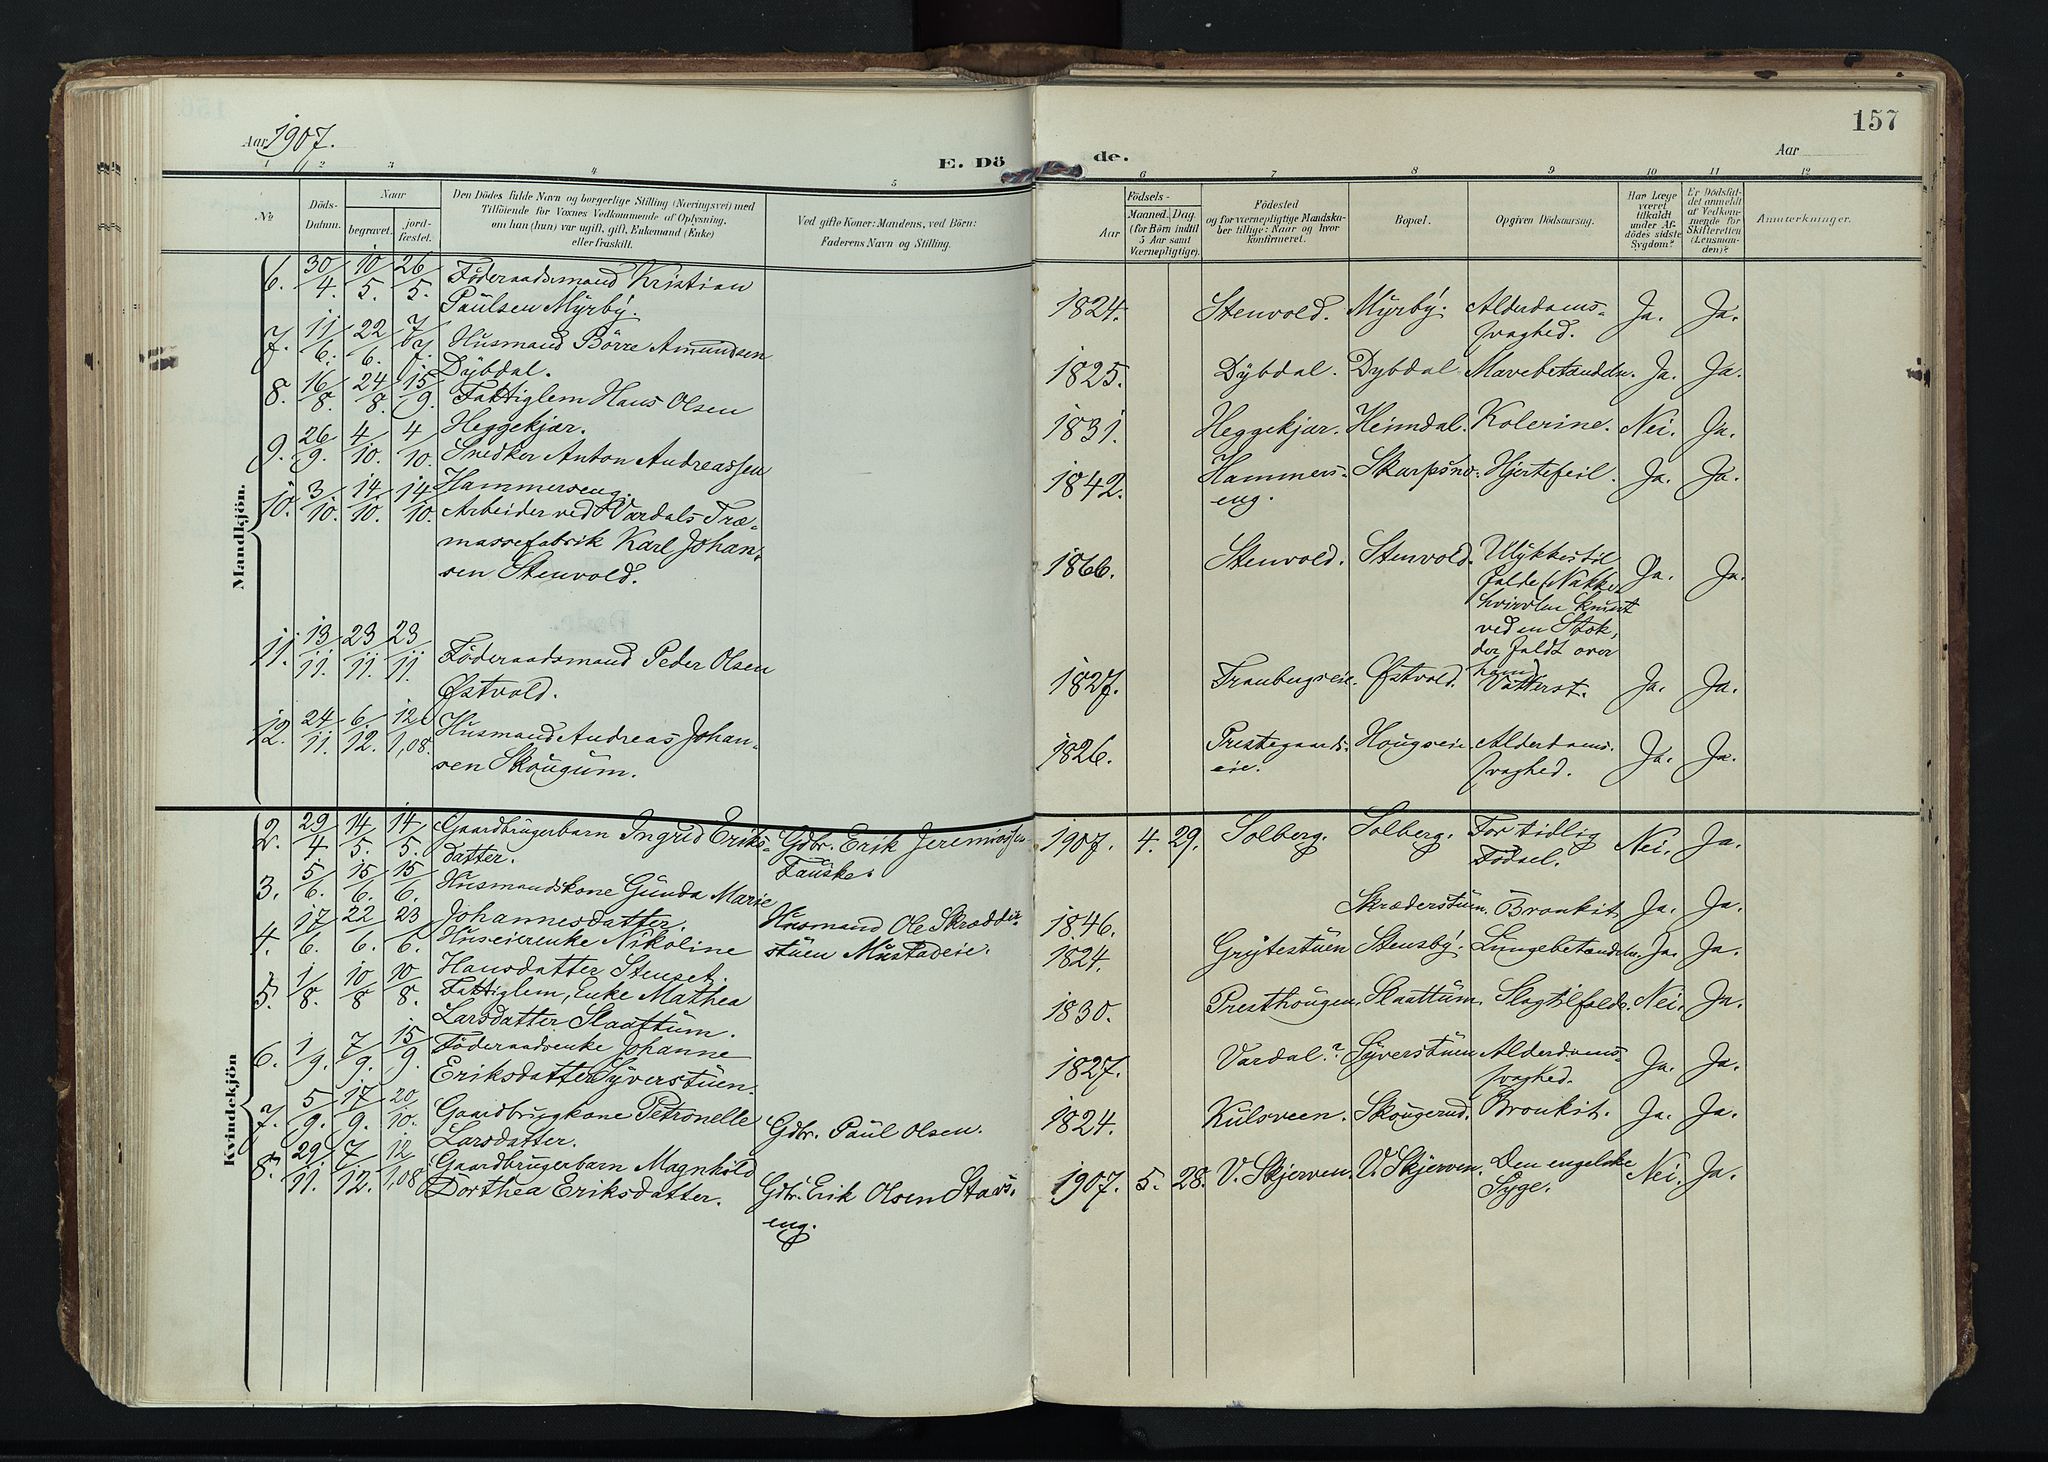 157
Aar 1907.
E. Dö de.
Aar
1 2 3 4 5 6 7 8 9 10 11 12
№
Döds-
Datum.
Naar
begravet.
jord-
fæstet.
Den Dödes fulde Navn og borgerlige Stilling (Næringsvei) med
Tilföiende for Voxnes Vedkommende af Oplysning,
om han (hun) var ugift, gift, Enkemand (Enke)
eller fraskilt.
Ved gifte Koner: Mandens, ved Börn:
Faderens Navn og Stilling.
Födsels-
Aar
Maaned. Dag.
(for Börn indtil
5 Aar samt
Værnepligtige).
Födested
og for værnepligtige Mandska-
ber tillige: Naar og hvor
konfirmeret.
Bopæl.
Opgiven Dödsaarsag.
Har Læge
været
tilkaldt
under Af-
dödes sidste
Sygdom?
Er Dödsfal-
det anmeldt
af Vedkom-
mende for
Skifteretten
(Lensman-
den)?
Anmærkninger.
Mandkjön.
6. 30/4. 10/5. 26/5. Föderaadsmand Kristian
Paulsen Myrby. 1824. Stenvold. Myrby. Alderdoms-
svaghed. Ja. Ja.
7. 11/6. 22/6. 7/7. Husmand Börre Amundsen
Dybdal. 1825. Dybdal. Dybdal. Mavebetændelse. Ja. Ja.
8. 16/8. 24/8. 15/9. Fattiglem Hans Olsen
Heggekjær. 1831. Heggekjær. Heimdal. Kolerine. Nei. Ja.
9. 26/9. 4/10. 4/10. Snedker Anton Andreassen
Hammerseng. 1842. Hammers-
eng. Skarpsno. Hjertefeil. Ja. Ja.
10. 3/10. 14/10. 14/10. Arbeider ved Vardals Træ-
massefabrik Karl Johan-
sen Stenvold. 1866. Stenvold. Stenvold. Ulykkestil
fælde (Nakke
hvirvlen knust
ved en Stok,
der faldt over
ham) Ja. Ja.
11. 13/11. 23/11. 23/11. Föderaadsmand Peder Olsen
Østvold. 1827. Franbergseie. Østvold. Vattersot. Ja. Ja.
12. 24/11. 6/12. 12/1,08 Husmand Andreas Johan-
sen Skougum. 1826. Prestegaards-
eie. Hougseie Alderdoms-
svaghed. Ja. Ja.
Kvindekjön
2. 29/4 14/5. 14/5. Gaardbrugerbarn Ingrid Eriks-
datter. Gdbr. Erik Jeremiassen
Fauske. 1907. 4. 29. Solberg. Solberg. For tidlig
Födsel. Nei. Ja.
3. 5/6. 15/6. 15/6. Husmandskone Gunda Marie
Johannesdatter. Husmand Ole Skrædder-
stuen Mustadeie. 1846. Skræderstuen. Bronkit. Ja. Ja.
4. 17/6. 22/6. 23/6. Huseierenke Nikoline
Hansdatter Stenset. 1824. Grytestuen Stensby. Lungebetændelse. Ja. Ja.
5. 1/8. 10/8 10/8. Fattiglem, Enke Mathea
Larsdatter Slaattum. 1830. Presthougen. Slaattum. Slagtilfælde. Nei. Ja.
6. 1/9. 7/9. 15/9. Föderaadsenke Johanne
Eriksdatter Syverstuen. 1827. Vardal? Syverstuen Alderdoms-
svaghed. Ja. Ja.
7. 5/9. 17/9. 20/10. Gaardbrugkone Petronelle
Larsdatter. Gdbr. Paul Olsen. 1824. Kulsveen. Skougerud. Bronkit. Ja. Ja.
8. 29/11. 7/12. 12/1,08 Gaardbrugerbarn Magnhild
Dorthea Eriksdatter. Gdbr. Erik Olsen Stavs-
eng. 1907. 5. 28. V. Skjerven. V. Skjerven. Den engelske
Syge. Nei. Ja.